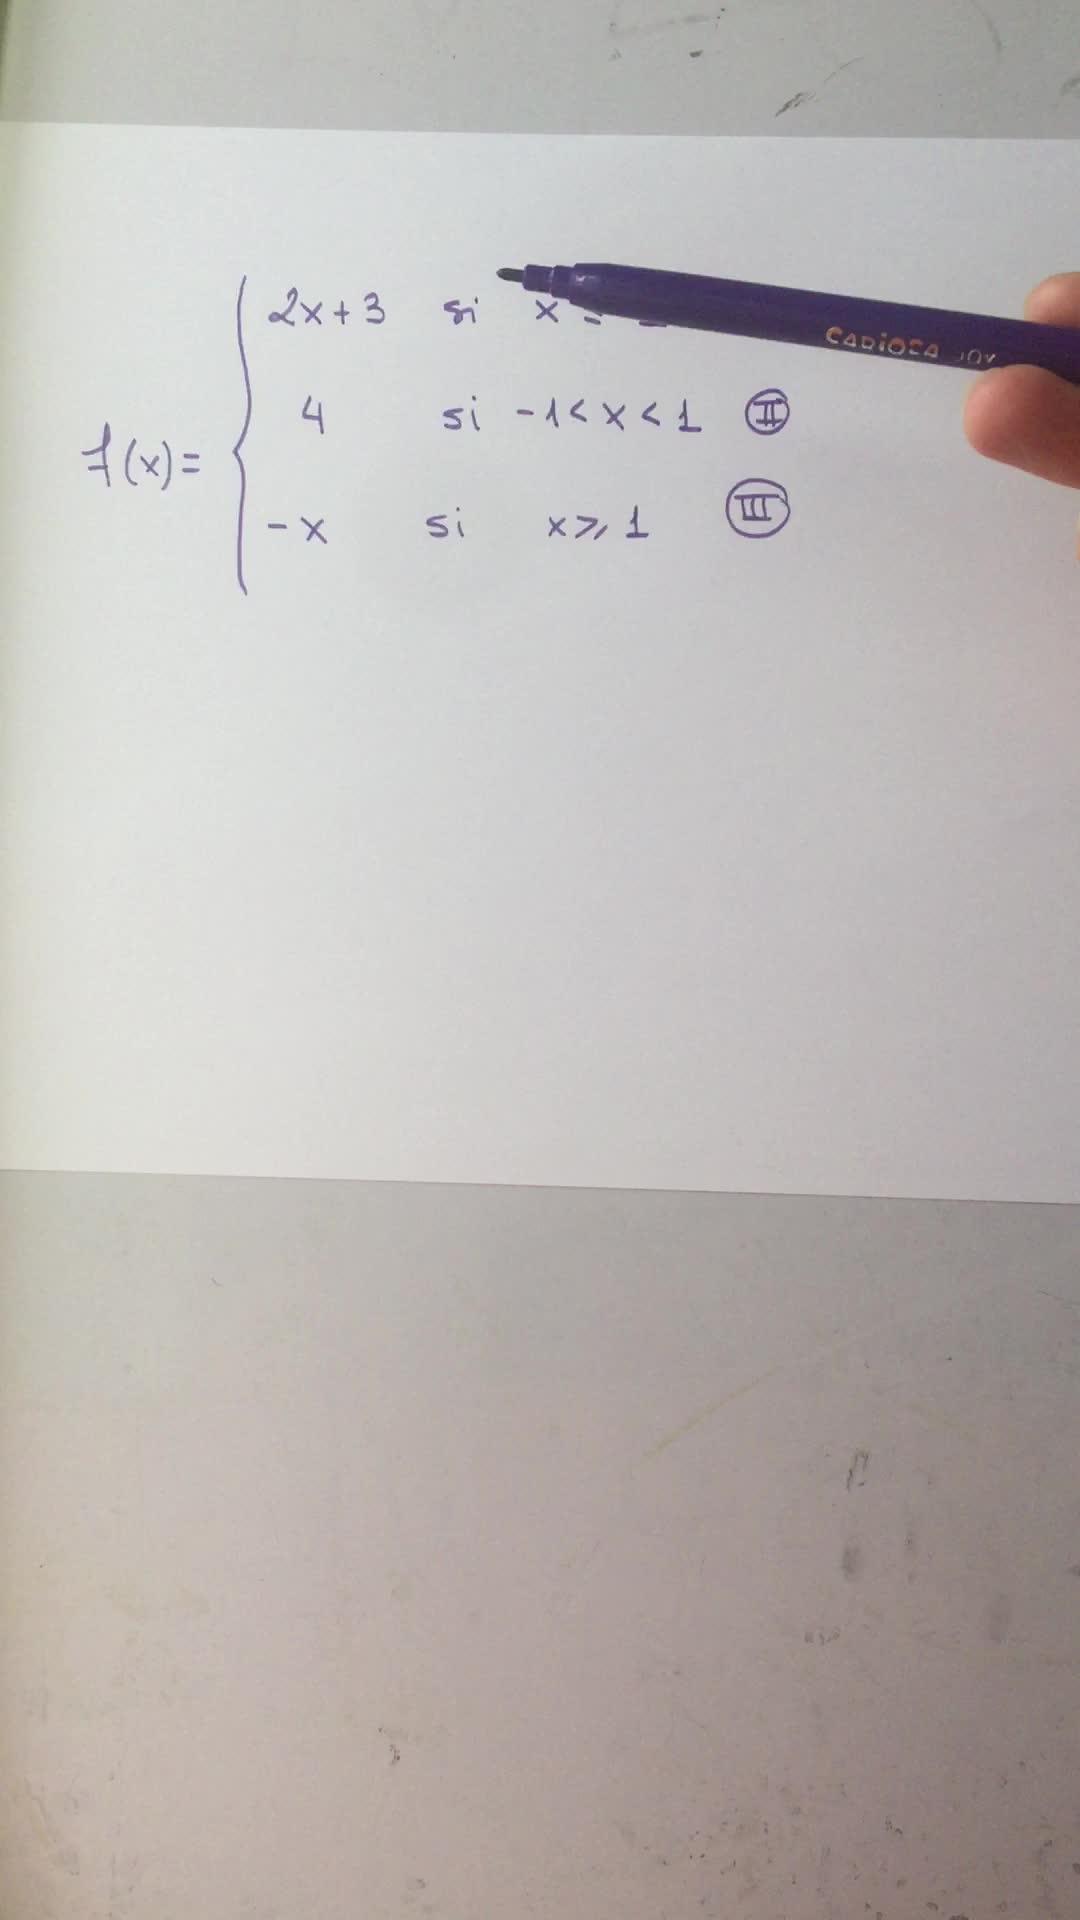 2x+3 si x
4 si -1<x<1 II
f(x)=
-x si x⩾1 III
CARIOCA JOY